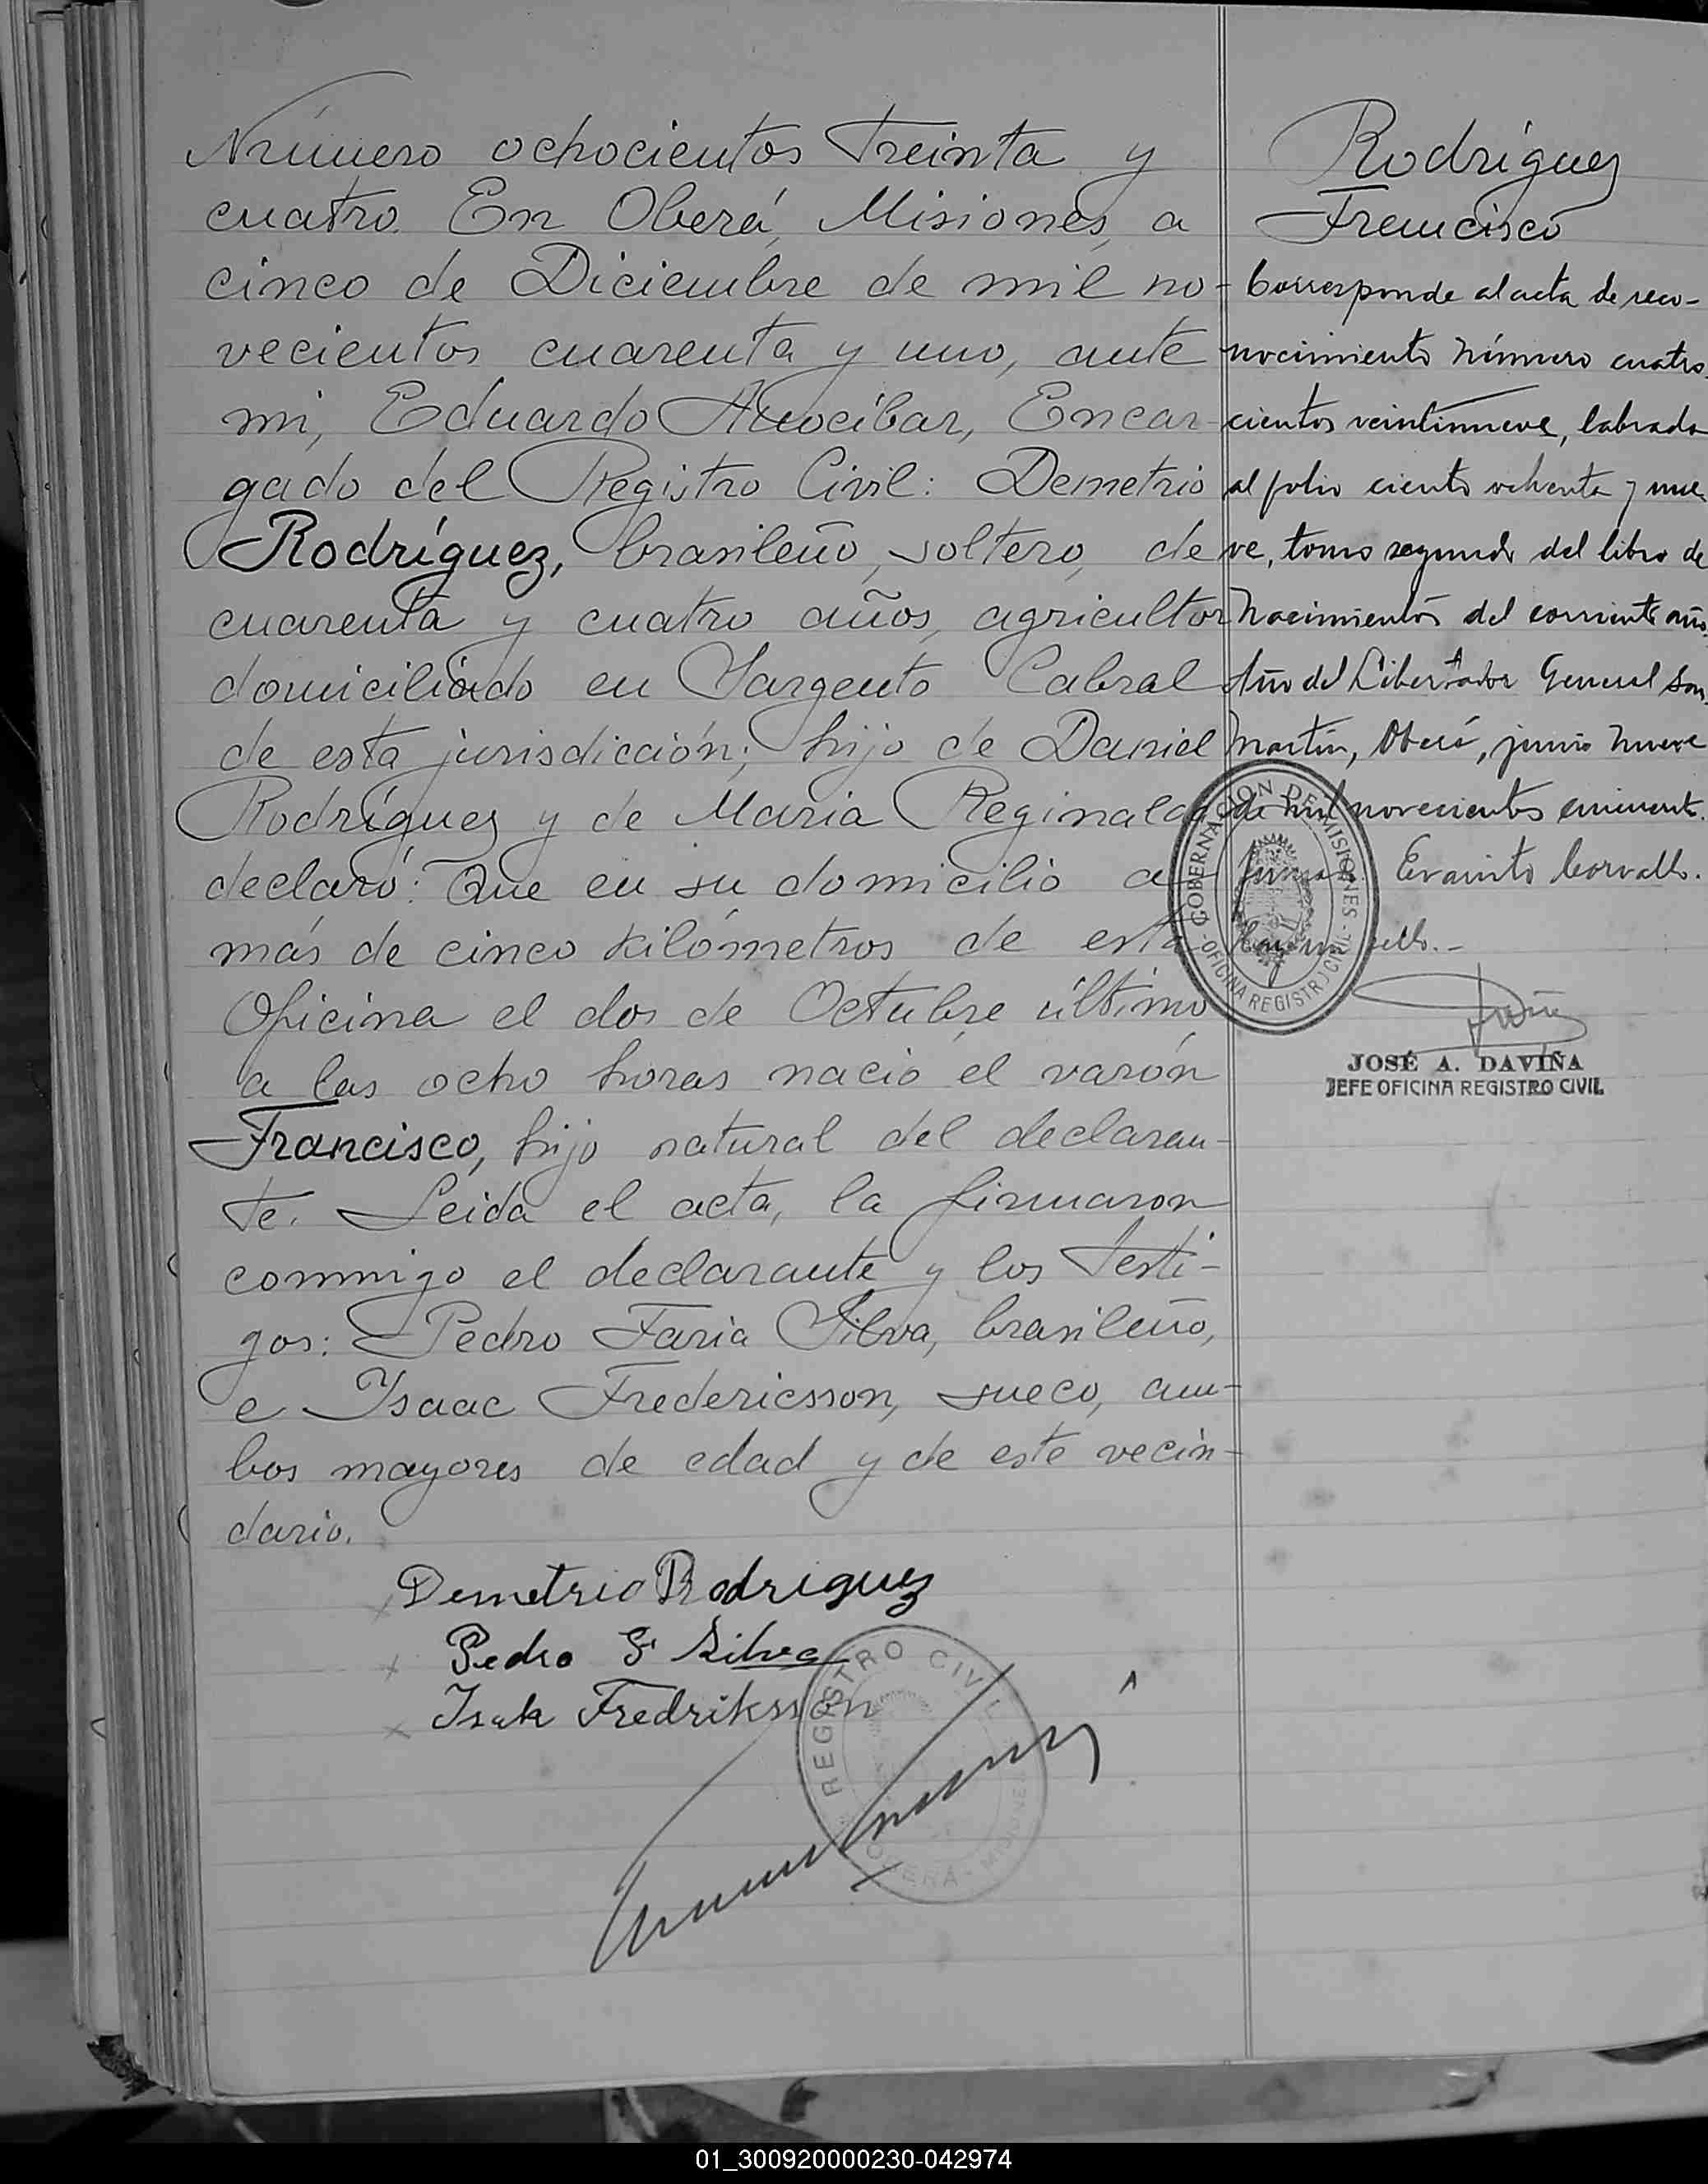 Número ochocientos treinta y
cuatro. En Oberá, Misiones, a
cinco de Diciembre de mil no-
vecientos cuarenta y uno, ante
mi, Eduardo Arrocibar, Encar-
gado del Registro Civil: Demetrio
Rodríguez, brasileño, soltero, de
cuarenta y cuatro años, agricultor
domiciliado en Sargento Cabral
de esta jurisdicción; hijo de Daniel
Rodríguez y de Maria Reginalda
declaró: Que en su domicilio a
más de cinco kilómetros de esta
Oficina el dos de Octubre último
a las ocho horas nació el varón
Francisco, hijo natural del declaran-
te. Leida el acta, la firmaron
conmigo el declarante y los testi-
gos: Pedro Faria Silva, brasileño,
e Isaac Fredericsson, sueco, am-
bos mayores de edad y de este vecin-
dario.
Demetrio Rodriguez
Pedro F Silva
Isak Fredriksson
REGISTRO CIVIL
OBERA - MISIONES
Rodríguez
Francisco
Corresponde al acta de reco-
nocimiento número cuatro-
cientos veintinueve, labrada
al folio ciento ochenta y nue-
ve, tomo segundo del libro de
Nacimientos del corriente año.
Año del Libertador General San
Martín, Oberá, junio nueve
de mil novecientos cincuenta.
Evaristo
GOBERNACION DE MISIONES
OFICINA REGISTRO CIVIL
JOSÉ A. DAVIÑA
JEFE OFICINA REGISTRO CIVIL
01_300920000230-042974